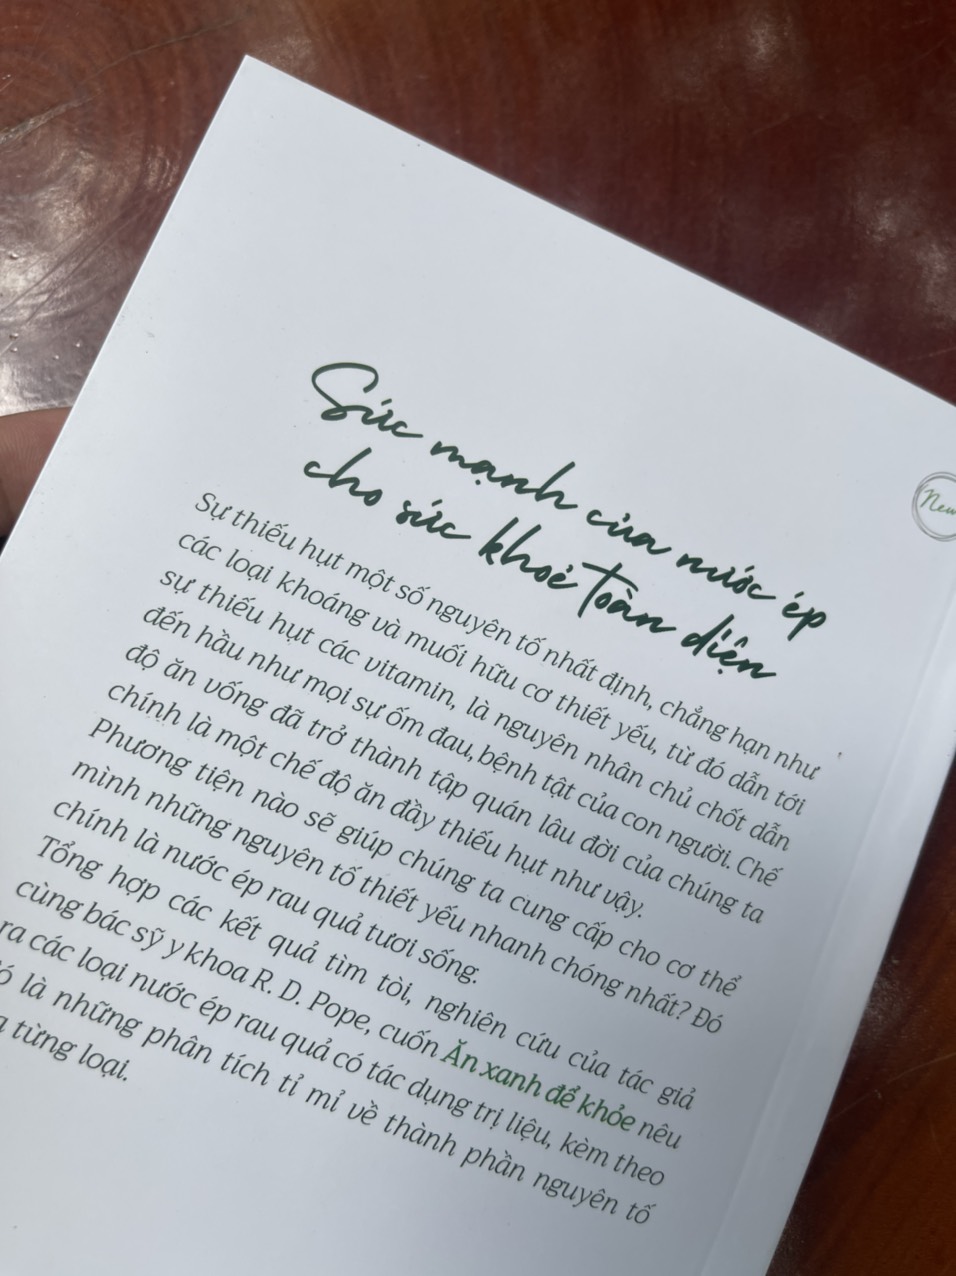 Sức mạnh của nước ép
cho sức khoẻ toàn diện
New
Sự thiếu hụt một số nguyên tố nhất định, chẳng hạn như
các loại khoáng và muối hữu cơ thiết yếu, từ đó dẫn tới
sự thiếu hụt các vitamin, là nguyên nhân chủ chốt dẫn
đến hầu như mọi sự ốm đau, bệnh tật của con người. Chế
độ ăn vống đã trở thành tập quán lâu đời của chúng ta
chính là một chế độ ăn đầy thiếu hụt như vậy.
Phương tiện nào sẽ giúp chúng ta cung cấp cho cơ thể
mình những nguyên tố thiết yếu nhanh chóng nhất? Đó
chính là nước ép rau quả tươi sống.
Tổng hợp các kết quả tìm tòi, nghiên cứu của tác giả
cùng bác sỹ y khoa R. D. Pope, cuốn Ăn xanh để khỏe nêu
ra các loại nước ép rau quả có tác dụng trị liệu, kèm theo
là những phân tích tỉ mỉ về thành phần nguyên tố
từng loại.